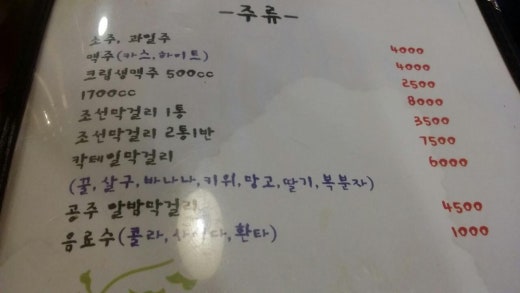 -주류-
소주, 과일주 4000
맥주(카스,하이트) 4000
크림생맥주 500cc 2500
1700cc 8000
조선막걸리 1통 3500
조선막걸리 2통1반 7500
칵테일막걸리 6000
(꿀,살구,바나나,키위,망고,딸기,복분자)
공주 알밤막걸리 4500
음료수(콜라,사이다,환타) 1000